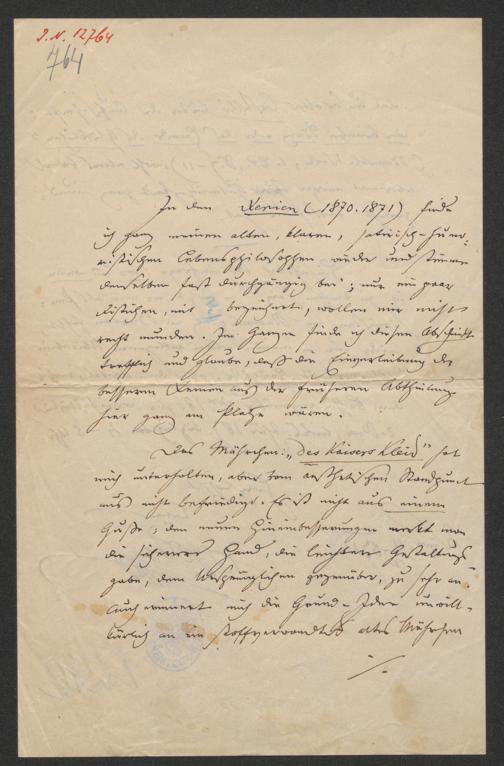 J.N. 12764
764
In den Xenien (1870. 1871) finde
ich ganz meinen alten, klaren, satirisch-humo-
ristischen Lebensphilosophen wieder und stimme
demselben fast durchgängig bei; nur ein paar
Distichen, mit bezeichnet, wollen mir nicht
recht munden. Im Ganzen finde ich diesen Abschnitt
trefflich und glaube, daß die Einverleibung der
besseren Xenien aus der früheren Abtheilung
hier ganz am Platze wären.
Das Mährchen: „des Kaisers Kleid" hat
mich unterhalten, aber vom aesthetischen Standpunkt
aus nicht befriedigt. Es ist nicht aus einem
Guße; den neuen Hineinbesserungen merkt man
die sicherere Hand, die leichtere Gestaltungs
gabe, dem Ursprünglichen gegenüber, zu sehr an.
Auch erinnert mich die Grund-Idee unwill-
kürlich an ein stoffverwandtes altes Mährchen
./.